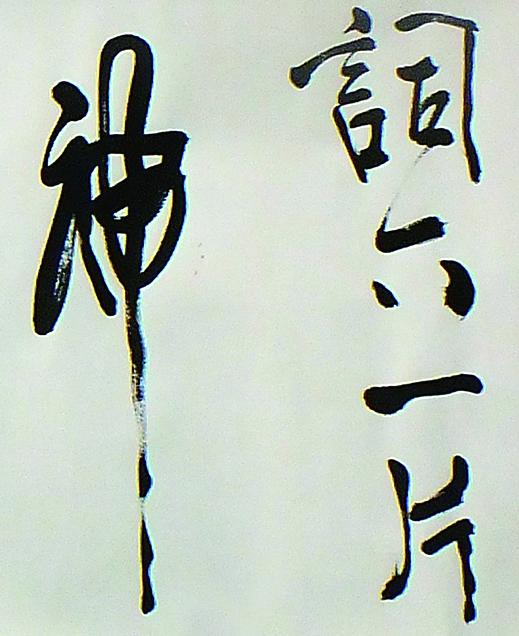 詞六一片
神